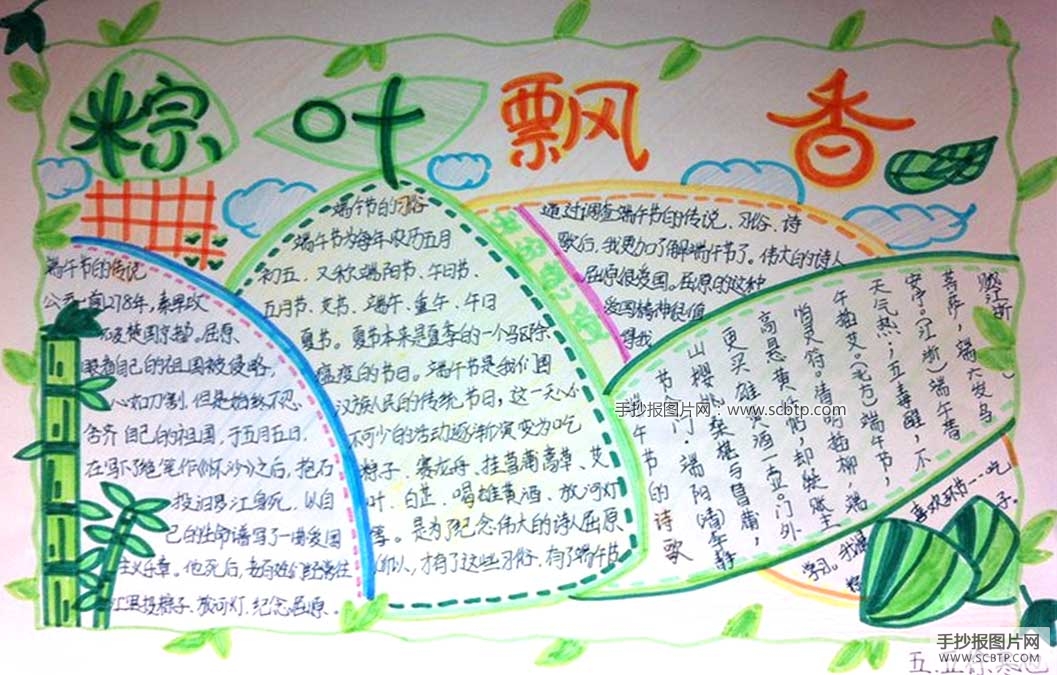 粽叶飘香
端午节的传说
公元前278年,秦军攻
破楚国京都。屈原
眼看自己的祖国被侵略,
心如刀割,但是始终不忍
舍弃自己的祖国,于五月五日,
在写下了绝笔作《怀沙》之后,抱石
投汨罗江身死,以自
己的生命谱写了一曲爱国
主义乐章。他死后,老百姓们经常往
江里投粽子、放河灯、纪念屈原。
端午节的习俗
端午节为每年农历五月
初五、又称端阳节、午日节、
五月节、艾节、端午、重午、午日
夏节。夏节本来是夏季的一个驱除
瘟疫的节日。端午节是我们国
汉族人民的传统节日,这一天必
不可少的活动逐渐演变为吃
粽子、赛龙舟、挂菖蒲蒿草、艾
叶、白芷、喝雄黄酒、放河灯
等。是为了纪念伟大的诗人屈原
所以,才有了这些习俗,有了端午节
通过调查端午节的传说、习俗、诗
歌后,我更加了解端午节了。伟大的诗人
屈原很爱国。屈原的这种
爱国精神很值
得我
学习。我最
喜欢环节——吃
粽子。
端午节的诗歌
节门·端阳(清)李静山
樱桃桑椹与菖蒲,
更买雄黄酒一壶。门外
高悬黄纸帖,却疑账主
怕灵符。清明插柳,端
午插艾。(北方)端午节,
天气热;五毒醒,不
安宁。(江浙)端午
菩萨,端六发乌
手抄报图片网:www.scbtp.com
手抄报图片网
WWW.SCBTP.COM
五.五